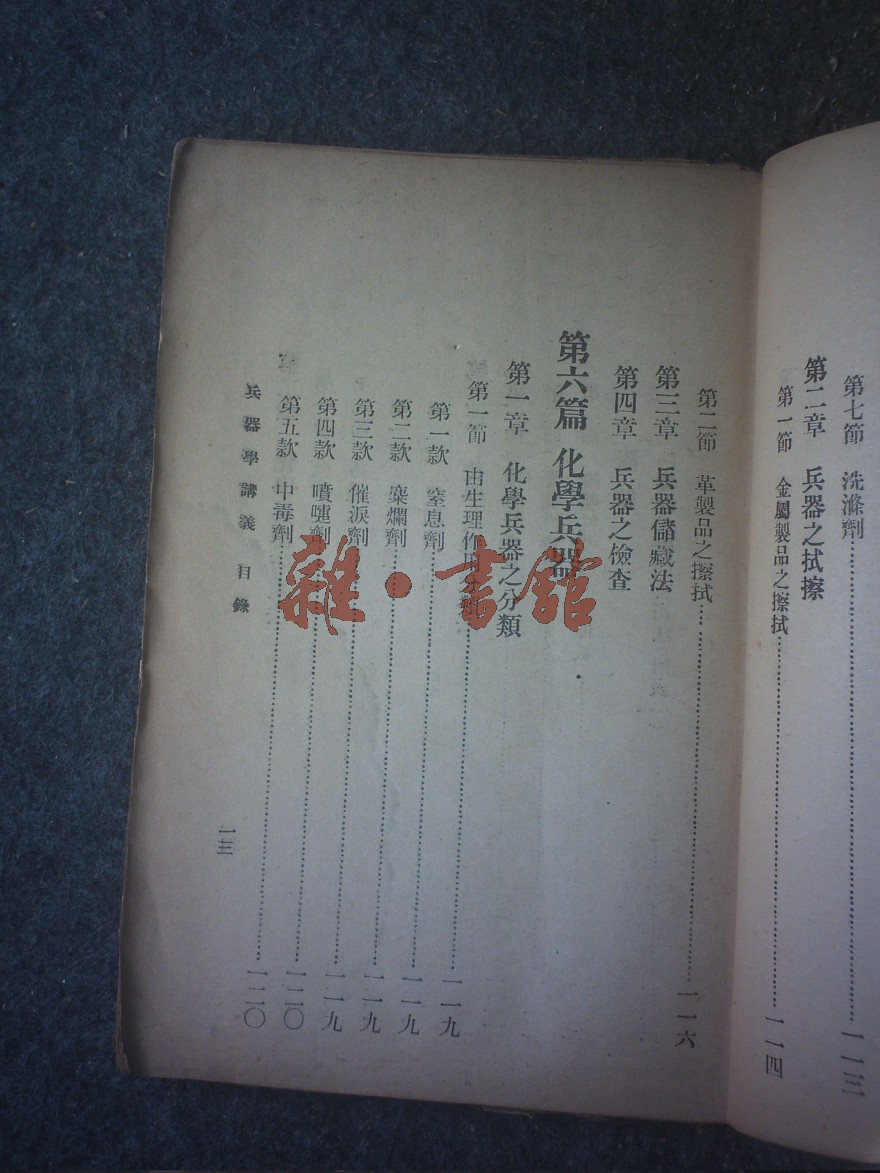 第七節 洗滌劑……一一三
第二章 兵器之拭擦
第一節 金屬製品之擦拭……一一四
第二節 革製品之擦拭……一一六
第三章 兵器儲藏法
第四章 兵器之檢查
第六篇 化學兵器
第一章 化學兵器之分類
第一節 由生理作用分類
第一款 窒息劑……一一九
第二款 糜爛劑……一一九
第三款 催淚劑……一一九
第四款 噴嚏劑……一一九
第五款 中毒劑……一二〇
第……一二〇
兵器學講義 目錄
一三
雜·書館